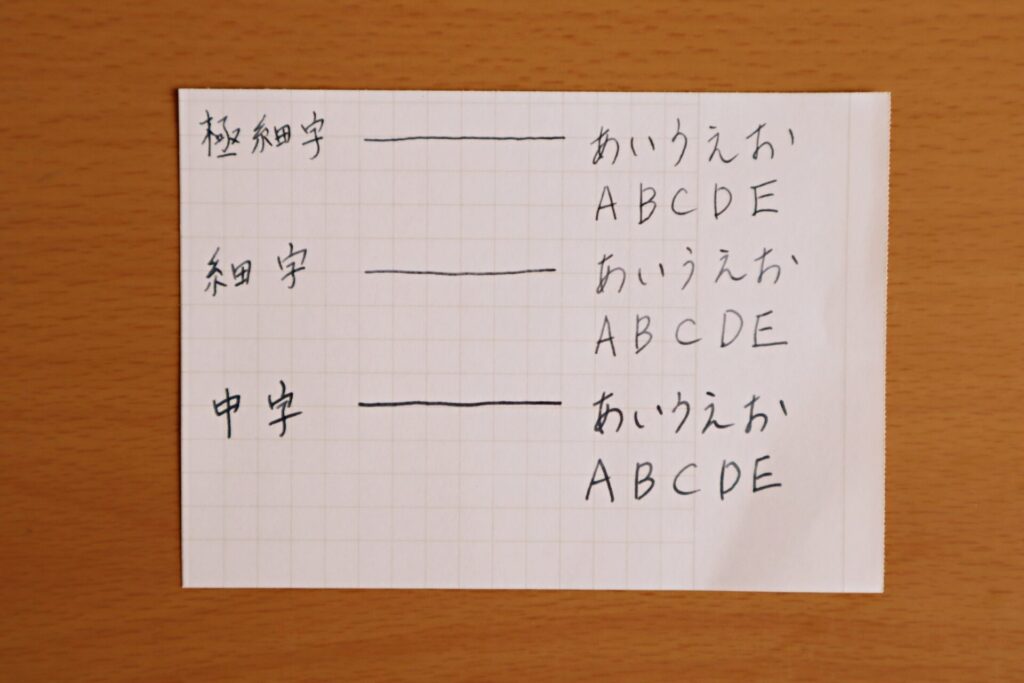 極細字 ―――― あいうえお
A B C D E
細字 ―――― あいうえお
A B C D E
中字 ―――― あいうえお
A B C D E